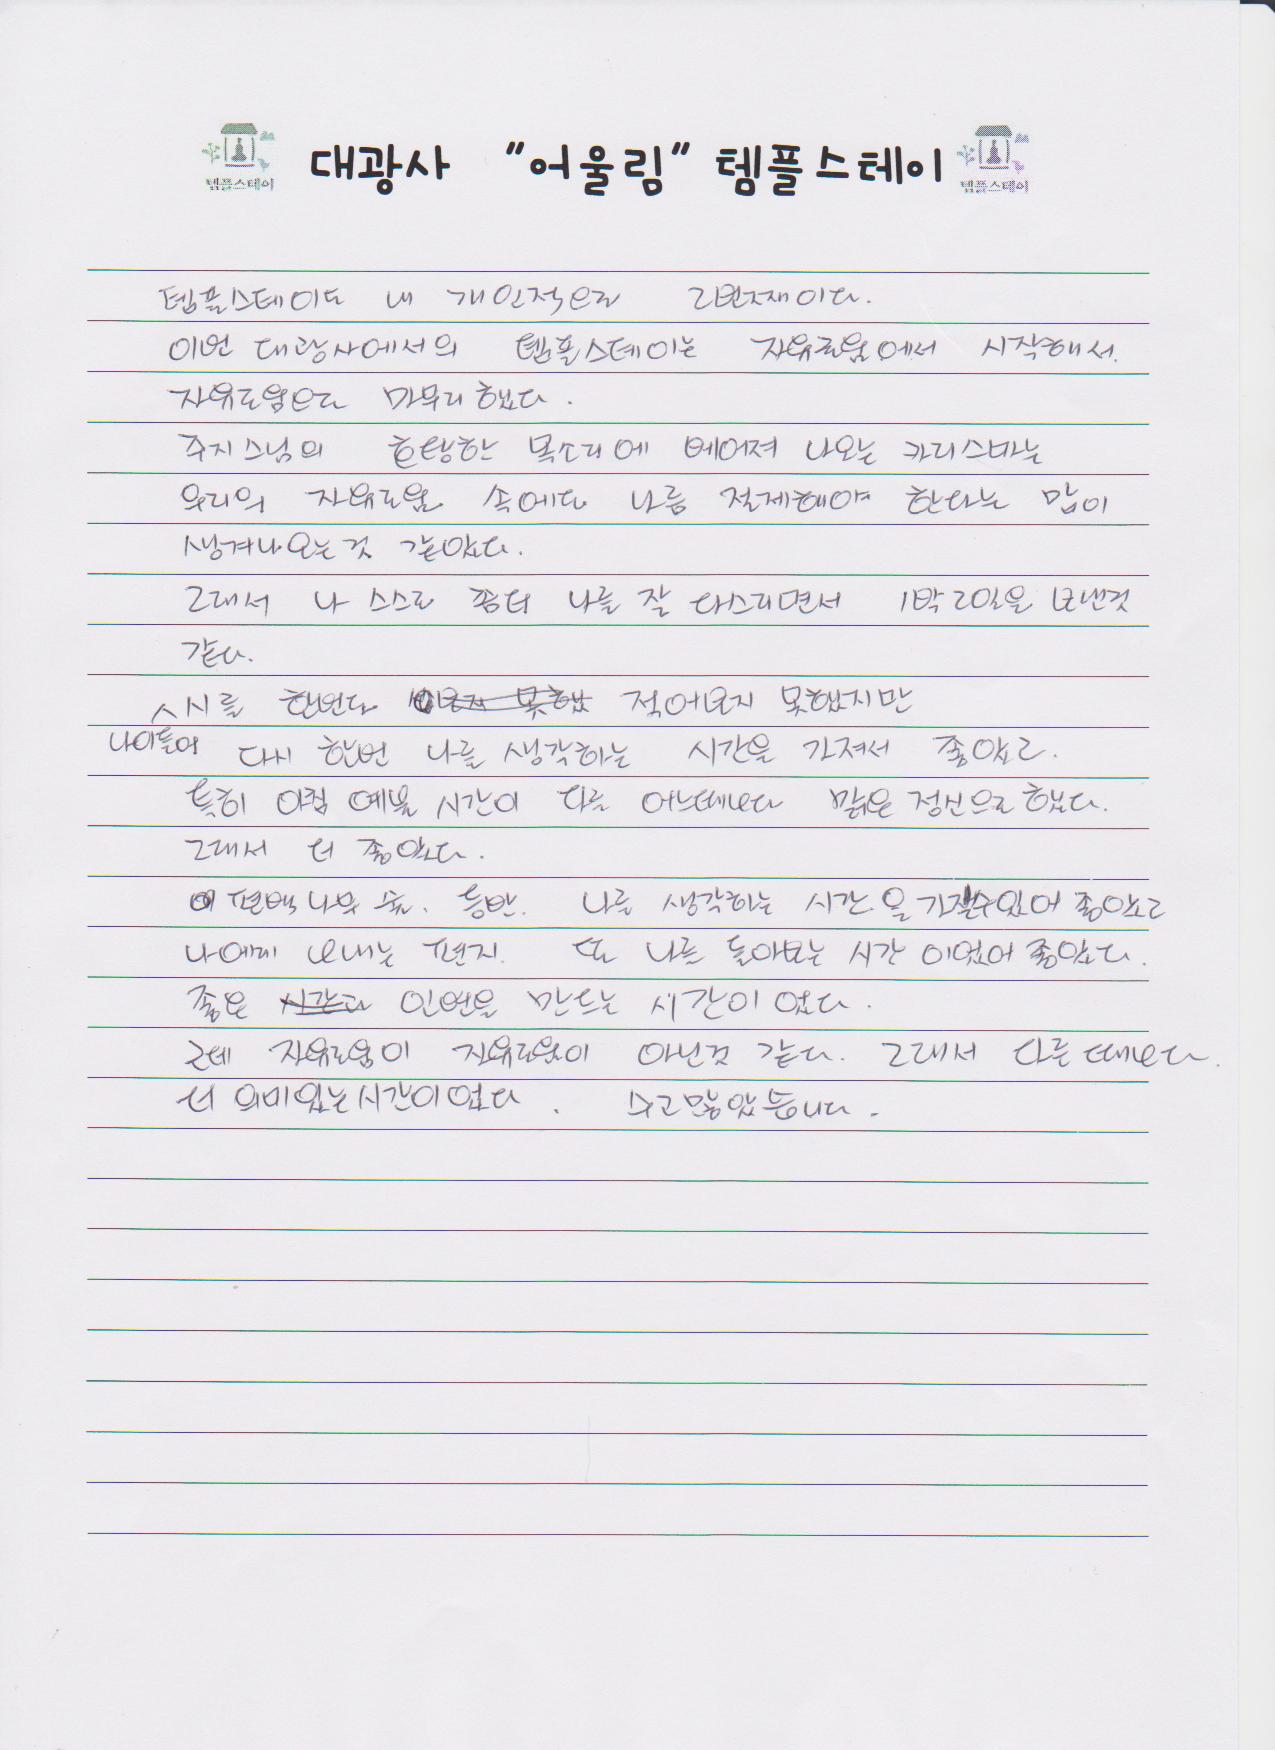 템플스테이 대광사 "어울림" 템플스테이 템플스테이
템플스테이도 내 개인적으로 2번째이다.
이번 대광사에서의 템플스테이는 자유로움에서 시작해서
자유로움으로 마무리했다.
주지스님의 호탕한 목소리에 베어져 나오는 카리스마는
우리의 자유로움 속에도 나름 절제해야 한다는 맘이
생겨나오는것 같았다.
그래서 나 스스로 좀더 나를 잘 다스리면서 1박2일을 보낸것
같다.
시를 한번도 적어보지 못했지만
나이들어 다시 한번 나를 생각하는 시간을 가져서 좋았고.
특히 아침 예불 시간이 다른 어느때보다 맑은 정신으로 했다.
그래서 더 좋았다.
편백나무 숲. 등반. 나를 생각하는 시간을 가질수있어 좋았고
나에게 보내는 편지. 또 나를 돌아보는 시간 이었어 좋았다.
좋은 인연을 만드는 시간이였다.
근데 자유로움이 자유로움이 아닌것 같다. 그래서 다른때보다.
더 의미있는시간이였다. 수고많았습니다.